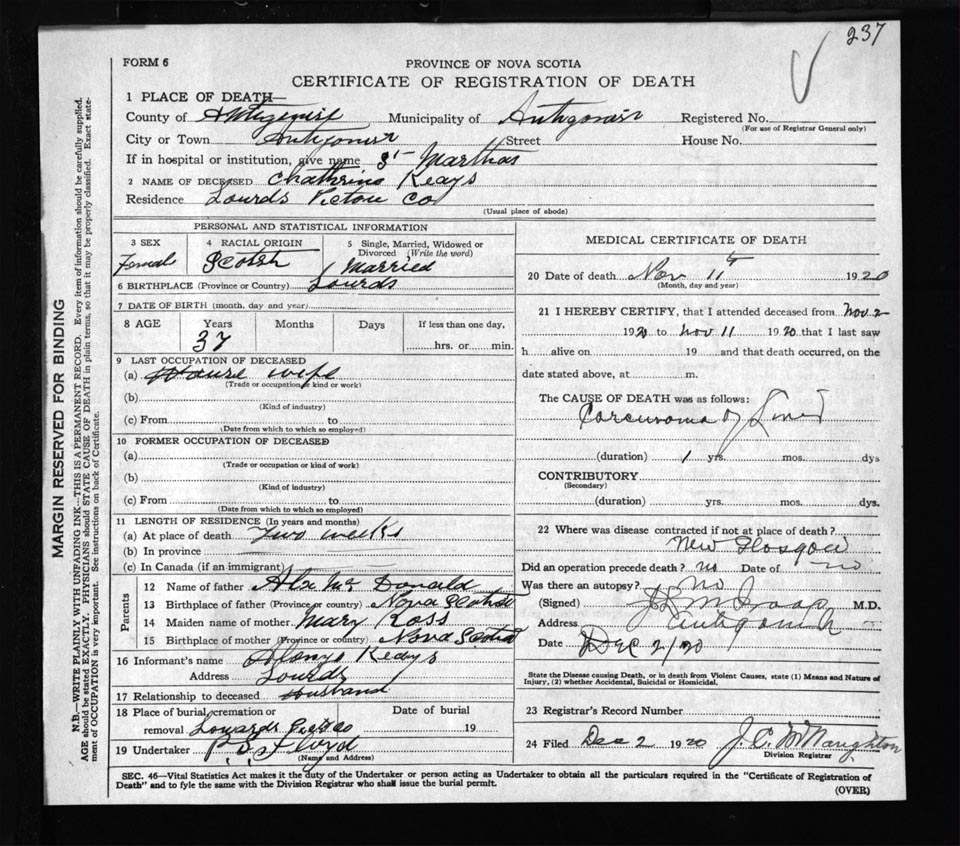 237
FORM 6
PROVINCE OF NOVA SCOTIA
CERTIFICATE OF REGISTRATION OF DEATH
1 PLACE OF DEATH—
County of Antigonish Municipality of Antigonish Registered No.
(For use of Registrar General only)
City or Town Antigonish Street House No.
If in hospital or institution, give name St Marthas
2 NAME OF DECEASED Chathrine Keays
Residence Lourds Pictou Co
(Usual place of abode)
PERSONAL AND STATISTICAL INFORMATION
3 SEX Femal
4 RACIAL ORIGIN Scotsh
5 Single, Married, Widowed or Divorced (Write the word) Married
6 BIRTHPLACE (Province or Country) Lourds
7 DATE OF BIRTH (month, day and year)
8 AGE Years Months Days If less than one day,
37 hrs. or min.
9 LAST OCCUPATION OF DECEASED
(a) House wife
(Trade or occupation or kind or work)
(b)
(Kind of industry)
(c) From to
(Date from which to which so employed)
10 FORMER OCCUPATION OF DECEASED
(a)
(Trade or occupation or kind of work)
(b)
(Kind of industry)
(c) From to
(Date from which to which so employed)
11 LENGTH OF RESIDENCE (In years and months)
(a) At place of death Two weeks
(b) In province
(c) In Canada (if an immigrant)
Parents
12 Name of father Alx Mc Donald
13 Birthplace of father (Province or country) Nova Scotia
14 Maiden name of mother Mary Ross
15 Birthplace of mother (Province or country) Nova Scotia
16 Informant's name Alonzo Keays
Address Lourds
17 Relationship to deceased Husband
18 Place of burial, cremation or Date of burial
removal Lowards Pictou 19
19 Undertaker Floyd
(Name and Address)
MEDICAL CERTIFICATE OF DEATH
20 Date of death Nov 11th 1920
(Month, day and year)
21 I HEREBY CERTIFY, that I attended deceased from Nov 2
1920 to Nov 11 1920 that I last saw
h alive on 19 and that death occurred, on the
date stated above, at m.
The CAUSE OF DEATH was as follows:
Carcinoma of
(duration) 1 yrs. mos. dys
CONTRIBUTORY
(Secondary)
(duration) yrs. mos. dys.
22 Where was disease contracted if not at place of death?
New Glasgow
Did an operation precede death? no Date of no
Was there an autopsy? No
(Signed) M.D.
Address Antigonish
Date Dec 2/20
State the Disease causing Death, or in death from Violent Causes, state (1) Means and Nature of
Injury, (2) whether Accidental, Suicidal or Homicidal.
23 Registrar's Record Number
24 Filed Dec 2 1920 J C McNaughton
Division Registrar
SEC. 46—Vital Statistics Act makes it the duty of the Undertaker or person acting as Undertaker to obtain all the particulars required in the "Certificate of Registration of
Death" and to fyle the same with the Division Registrar who shall issue the burial permit.
(OVER)
MARGIN RESERVED FOR BINDING
N.B.—WRITE PLAINLY WITH UNFADING INK—THIS IS A PERMANENT RECORD. Every item of information should be carefully supplied.
AGE should be stated EXACTLY. PHYSICIANS should STATE CAUSE OF DEATH in plain terms, so that it may be properly classified. Exact state-
ment of OCCUPATION is very important. See instructions on back of Certificate.